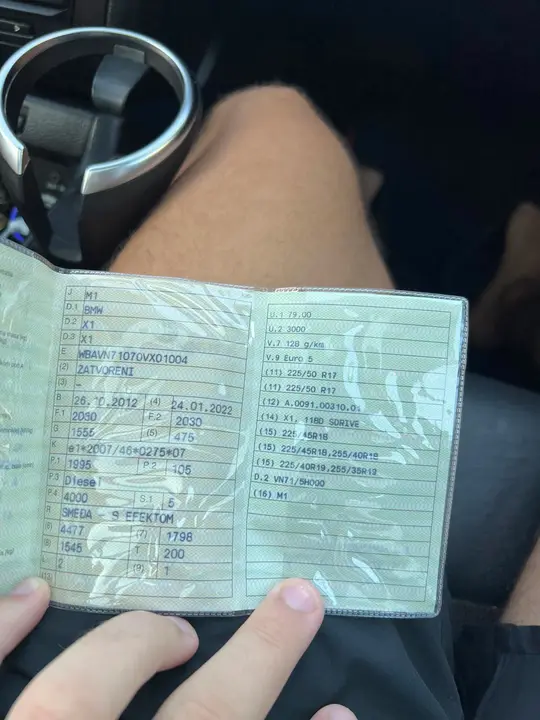 J M1
D.1 BMW
D.2 X1
D.3 X1
E WBAVN71070VX01004
(2) ZATVORENI
(3) -
B 26.10.2012 (4) 24.01.2022
F.1 2030 F.2 2030
G 1555 (5) 475
K e1*2007/46*0275*07
P.1 1995 P.2 105
P.3 Diesel
P.4 4000 S.1 5
R SMEĐA - S EFEKTOM
(6) 4477 (7) 1798
(8) 1545 T 200
L 2 (9) 1
U.1 79.00
U.2 3000
V.7 128 g/km
V.9 Euro 5
(11) 225/50 R17
(11) 225/50 R17
(12) A.0091.00310.01
(14) X1, 118D SDRIVE
(15) 225/45R18
(15) 225/45R18,255/40R18
(15) 225/40R19,255/35R19
D.2 VN71/5H000
(16) M1